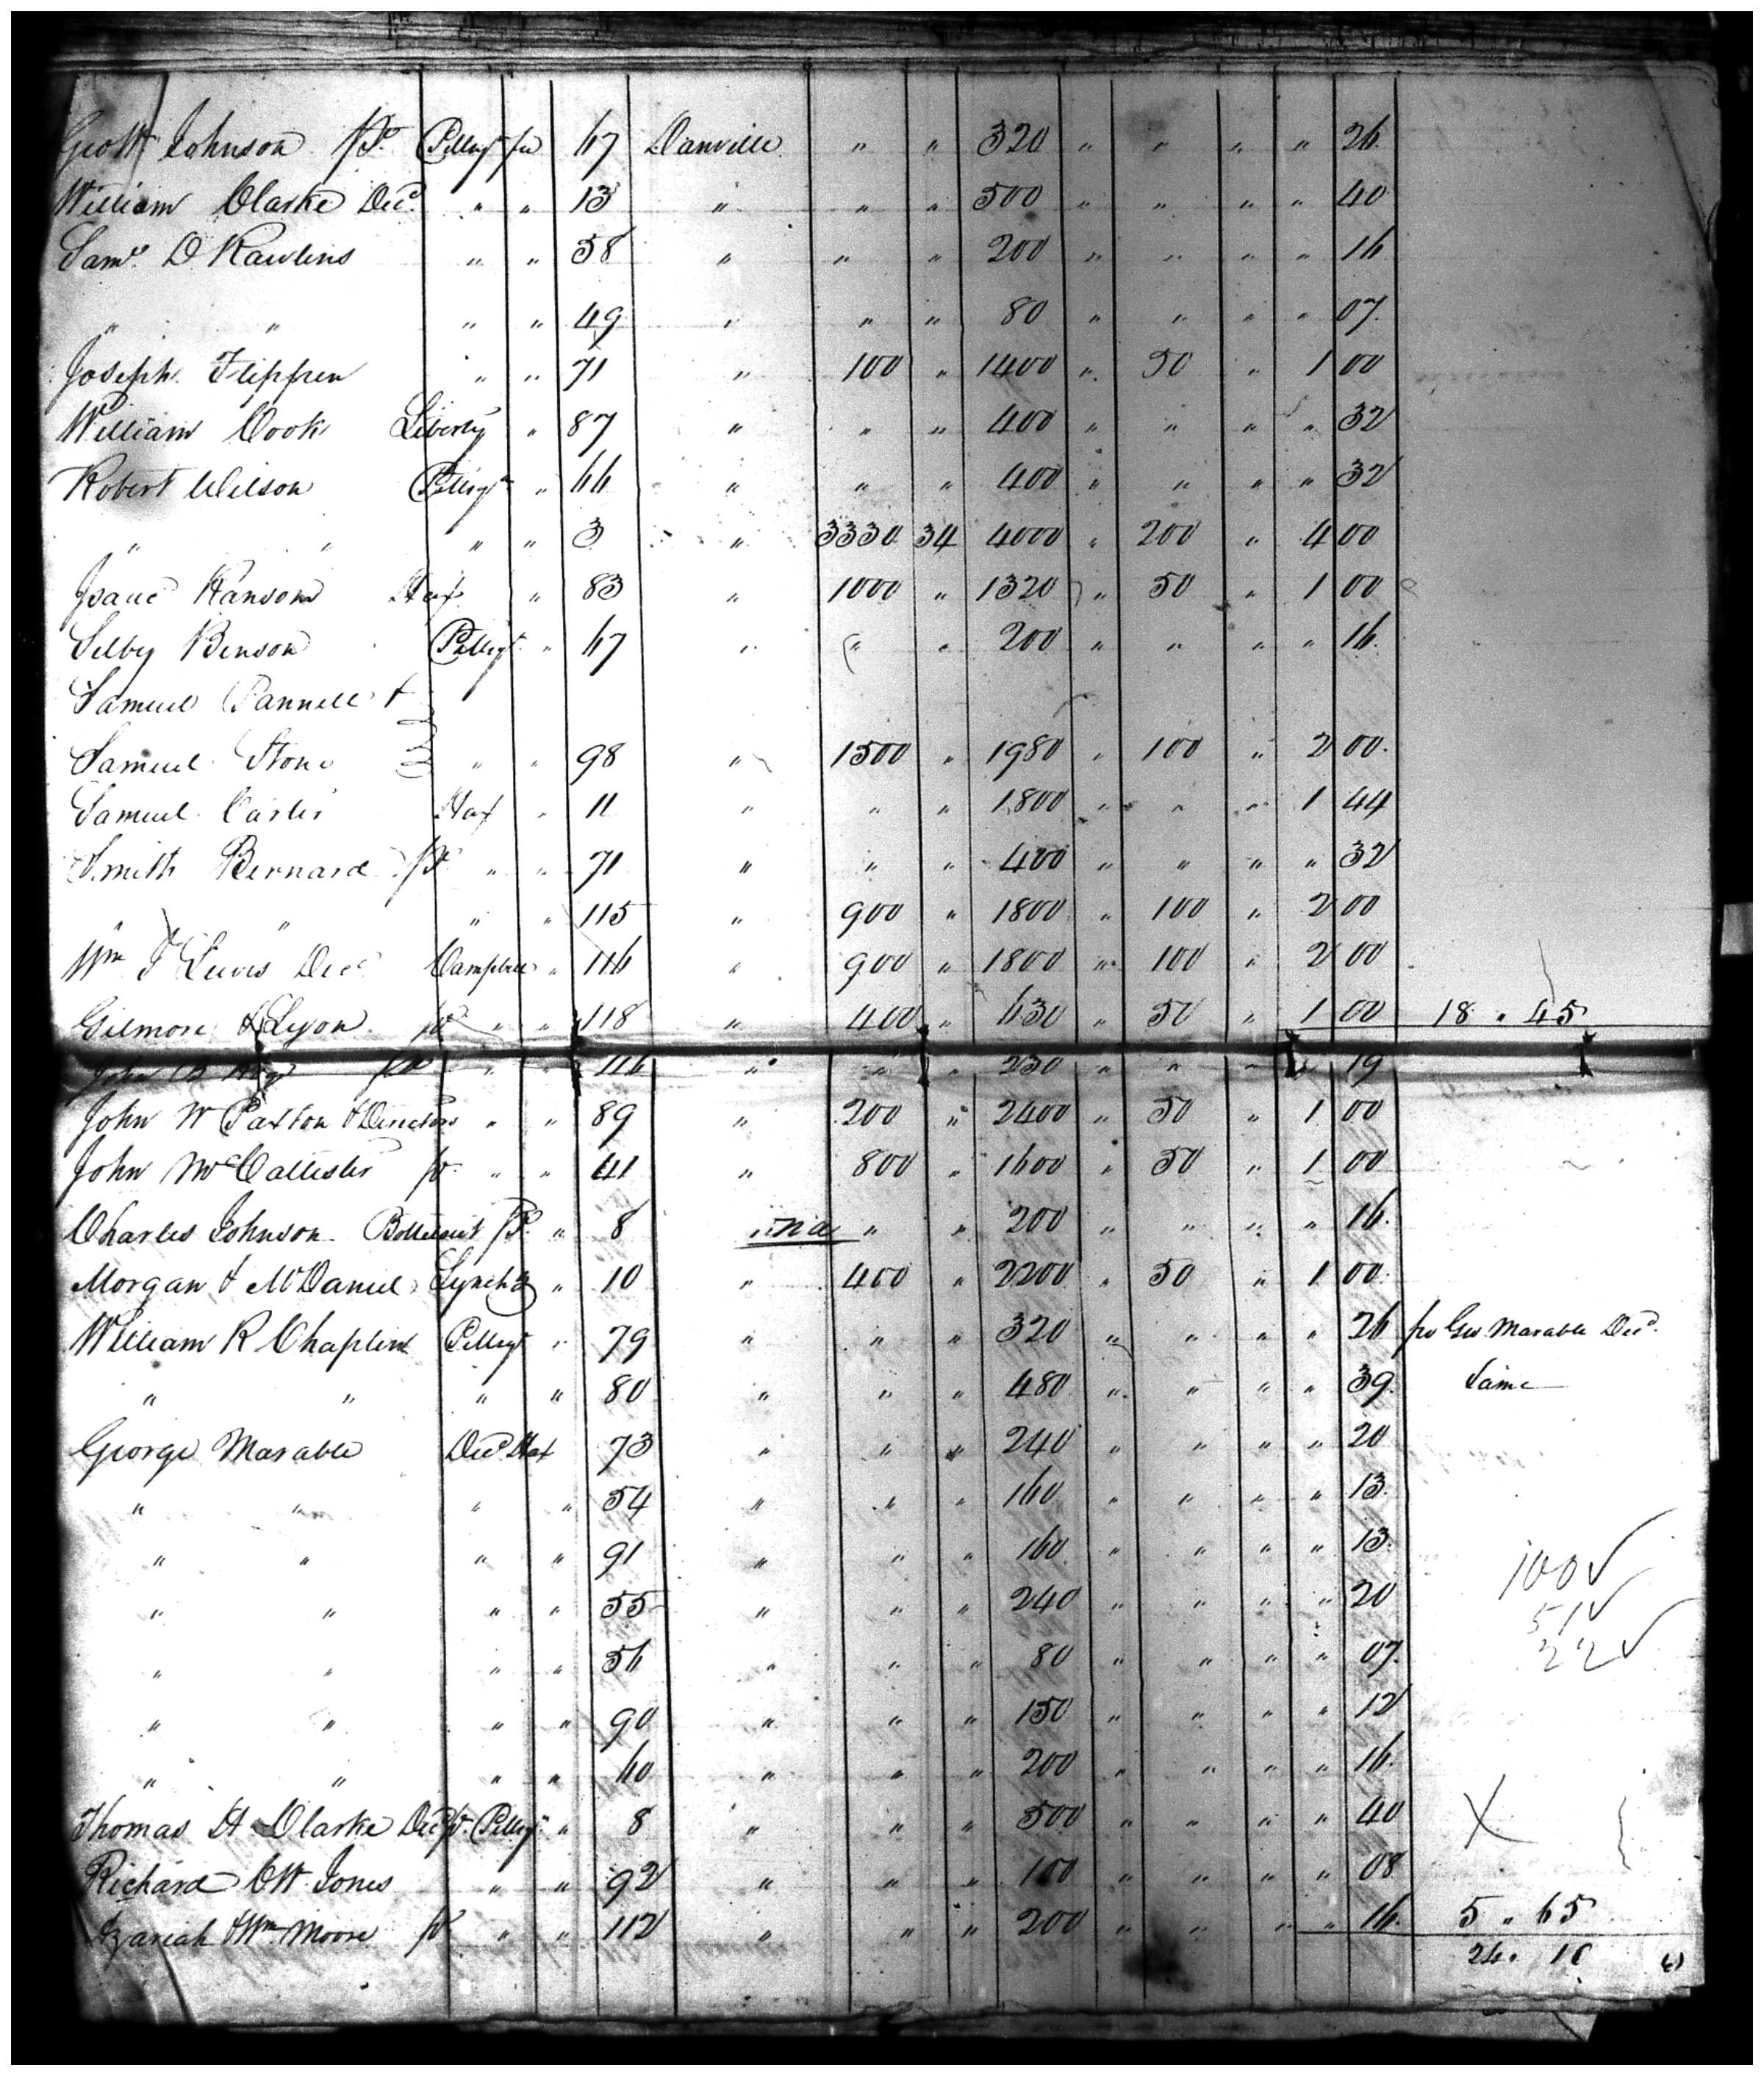 Geo W Johnson Jr. Pittsy. fee 67 Danville " " 320 " " " " 26
William Clarke Decd. " " 13 " " " 500 " " " " 40
Saml. D Rawlins " " 58 " " " 200 " " " " 16
" " " " 49 " " " 80 " " " " 07
Joseph Flippen " " 71 " 100 " 1400 " 50 " 1 00
William Cook Liberty " 87 " " " 400 " " " " 32
Robert Wilson Pittsy. " 66 " " " 400 " " " " 32
" " " " 3 " 3330 34 4000 " 200 " 4 00
Isaac Ransom Hax " 83 " 1000 " 1320 " 50 " 1 00
Selby Benson Pittsy. " 67 " " " 200 " " " " 16
Samuel Pannell &
Samuel Stone " " 98 " 1500 " 1980 " 100 " 2 00
Samuel Carter Hax " 11 " " " 1800 " " " 1 44
Smith Bernard " " 71 " " " 400 " " " " 32
" " " " 115 " 900 " 1800 " 100 " 2 00
Wm I Lewis Decd Campbell " 116 " 900 " 1800 " 100 " 2 00
Gilmore & Lyon " " 118 " 400 " 630 " 50 " 1 00 18 . 45
John B " " 116 " " " 230 " " " " 19
John W Paxton & Directors " " 89 " 200 " 2400 " 50 " 1 00
John McCallister " " 41 " 800 " 1600 " 50 " 1 00
Charles Johnson Bottetourt " 8 " " " 200 " " " " 16
Morgan & McDaniel Lynchbg " 10 " 400 " 2200 " 50 " 1 00
William R Chaplin Pittsy. " 79 " " " 320 " " " " 26 fro Geo Marable Decd.
" " " " 80 " " " 480 " " " " 39 Same
George Marable Decd. Hax 73 " " " 240 " " " " 20
" " " " 54 " " " 160 " " " " 13
" " " " 91 " " " 160 " " " " 13
100
" " " " 55 " " " 240 " " " " 20
51
" " " " 56 " " " 80 " " " " 07
22
" " " " 90 " " " 150 " " " " 12
" " " " 60 " " " 200 " " " " 16
Thomas H Clarke Decd. Pittsy. " 8 " " " 500 " " " " 40
Richard CW Jones " " 92 " " " 100 " " " " 08
Azariah & Wm Moore " " 112 " " " 200 " " " " 16 5 " 65
24. 10